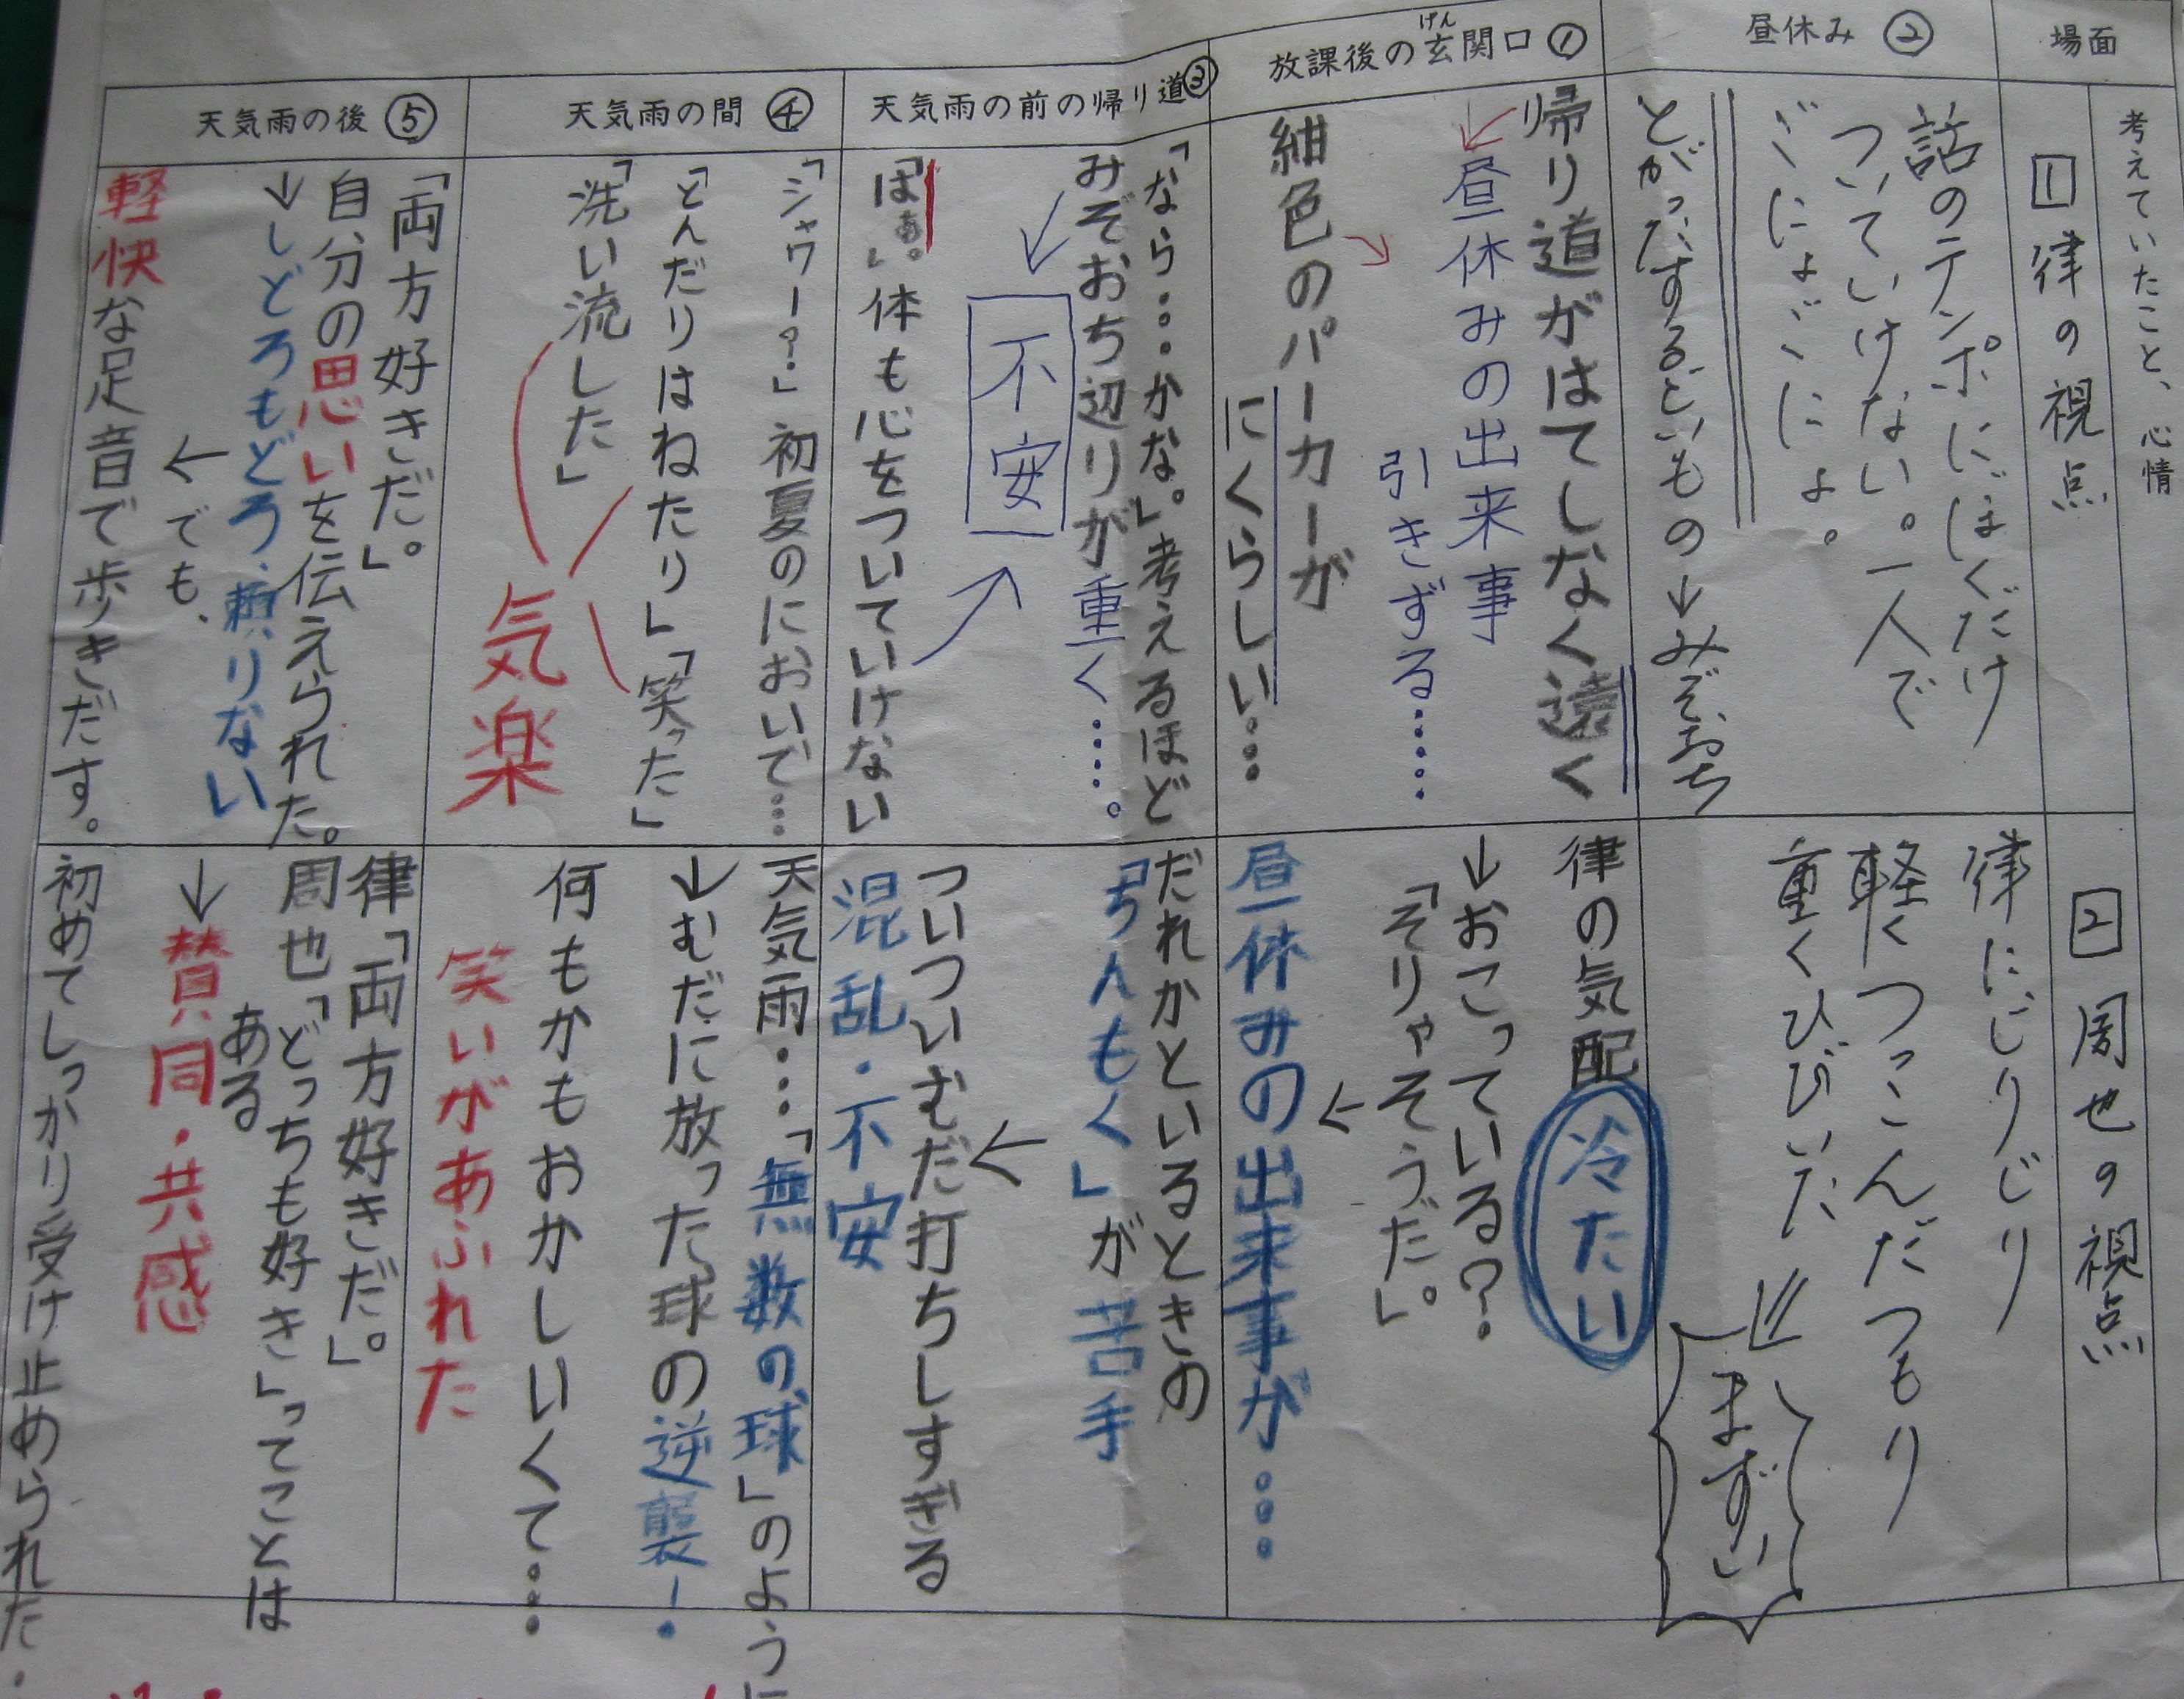 場面
考えていたこと、心情
1 律の視点
2 周也の視点
昼休み ②
話のテンポにぼくだけ
ついていけない。一人で
ごにょごにょ。
とがったするどいもの→みぞおち
律にじりじり
軽くつっこんだつもり
重くひびいた
まずい
放課後の玄関口 ①
げん
帰り道がはてしなく遠く
昼休みの出来事
引きずる……
紺色のパーカーが
にくらしい…
律の気配 冷たい
→おこっている?
「そりゃそうだ。」
昼休みの出来事が…
天気雨の前の帰り道 ③
「なら…かな。」考えるほど
みぞおち辺りが重く……。
不安
「はぁ。」体も心をついていけない
だれかといるときの
「ちんもく」が苦手
ついついむだ打ちしすぎる
混乱・不安
天気雨の間 ④
「シャワー?」初夏のにおいで…
「とんだりはねたり」「笑った」
「洗い流した」
気楽
天気雨…「無数の球」のように
→むだに放った球の逆襲!
何もかもおかしいくて…
笑いがあふれた
天気雨の後 ⑤
「両方好きだ。」
自分の思いを伝えられた。
→しどろもどろ、頼りない
←でも、
軽快な足音で歩きだす。
律「両方好きだ。」
周也「どっちも好き」ってことは
ある
→賛同・共感
初めてしっかり受け止められた